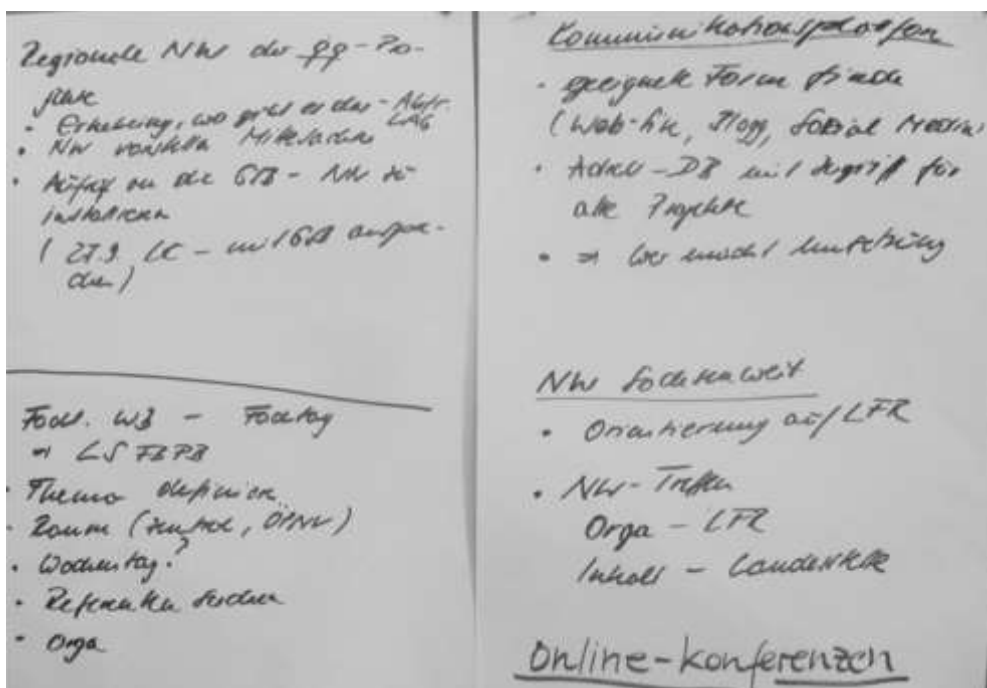 Regionale NW der gg-Pro-
jekte
• Erhebung, wo gibt es das - Abfr. LAG
• NW vorstellen Mittelsachsen
• Aufruf an die GSB - NW zu
installieren
( 27.9. LK - mit GSB
)
Fachl. WB - Fachtag
⇒ LS FBPB
- Thema definieren
- Raum (zentral, ÖPNV)
• Wochentag?
• Referenten suchen
- Orga
Kommunikationsplattform
• geeignete Form finden
(Web-Site, Blogg, Sozial Medien)
• Adress-DB mit Zugriff für
alle Projekte
• ⇒ Wer macht Umsetzung
NW Sachsenweit
• Orientierung auf LFR
• NW-Treffen
Orga - LFR
Inhalt - Landesstelle
Online-Konferenzen